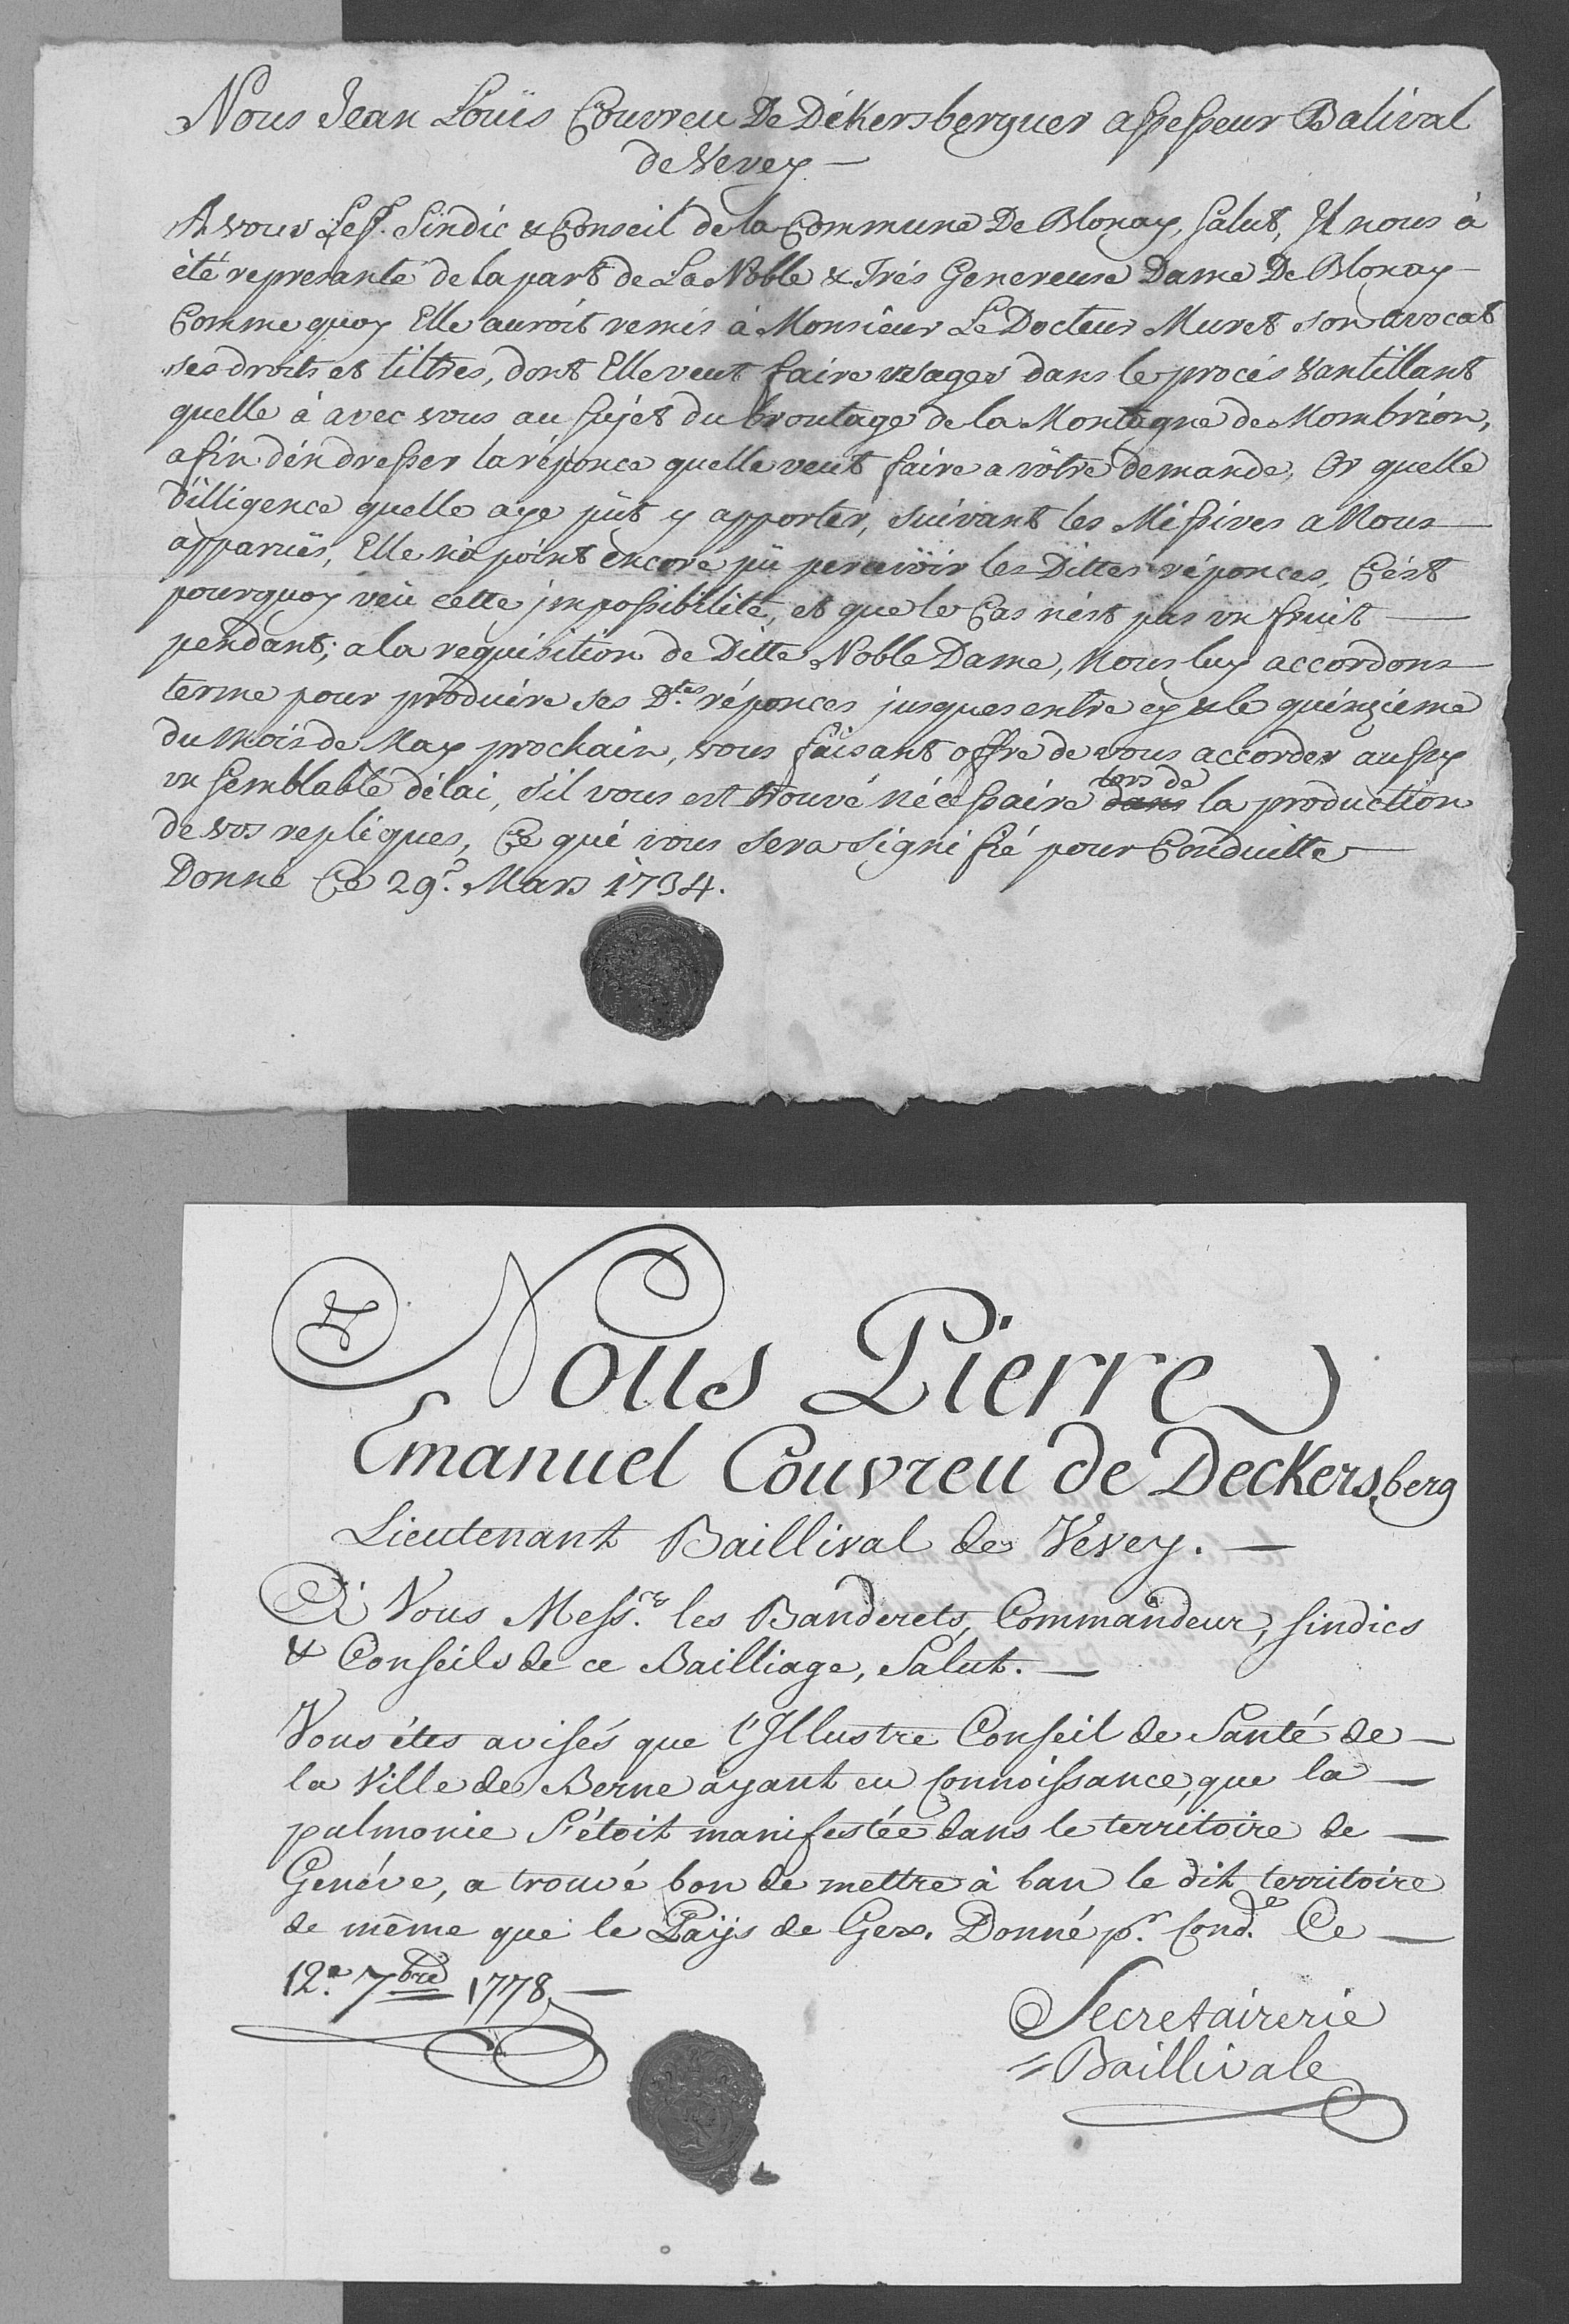 Nous Jean Louïs Couvreu De Dékersberguer assesseur Balival
de Vevey —
A vous Les Sr. Sindic & Conseil de la Commune De Blonay, Salut, Il nous à
èté represanté de la part de La Noble & Trés Genereuse Dame De Blonay —
Comme quoy Elle auroit remis à Monsieur Le Docteur Muret son avocat
ses droits et tiltres, dont Elle veut faire usager dans le procés vantillant
quelle à avec vous au sujet du broutage de la Montagne de Mombrion,
afin dèn dresser la réponce quelle veut faire a vôtre demande, Or quelle
Dilligence quelle aye pût y apporter, suivant les Missives a Nous —
apparuës, Elle n'a point encore pû percevoir les Dittes réponces, C'ést
pourquoy vëu cette impossibilité, et que le Cas n'ést pas un fruit —
pendant; a la requisition de Ditte Noble Dame, Nous luy accordons
terme pour produire ses D.tes réponces jusques entre cy & le quinzieme
du Mois de May prochain, vous faisant offre de vous accorder aussy
un semblable délai, s'il vous est trouvé nécessaire dans lors de la production
de vos repliques, Ce qui vous sera signifié pour Conduitte —
Donné Ce 29e. Mars 1734.
Nous Pierre
Emanuel Couvreu de Deckersberg
Lieutenant Baillival de Vevey. —
A Vous Mess.rs les Banderets, Commandeur, sindics
& Conseils de ce Bailliage, Salut. —
Vous étes avisés que l'Illustre Conseil de Santé de —
la Ville de Berne àyant eu Connoissance, que la —
pulmonie S'étoit manifestée dans le territoire de —
Genéve, a trouvé bon de mettre à ban le dit territoire
de même que le Païs de Gex. Donné p.r Cond.e Ce —
12.e 7bre 1778. —
Secretairerie
= Baillivale